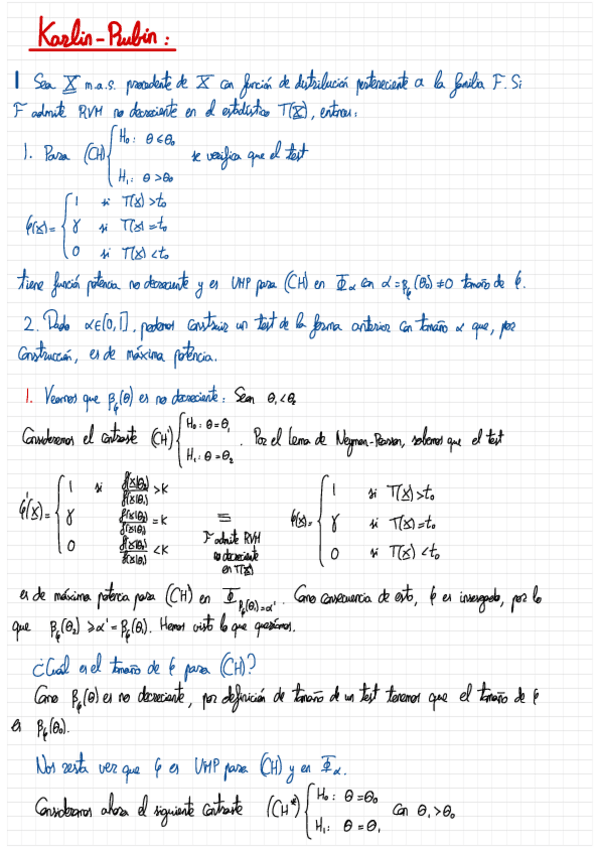 Karlin-Rubin:
Sea X m.a.s. procedente de X con función de distribución perteneciente a la familia F. Si
F admite RVM no decreciente en el estadístico T(X), entonces:
1. Para (CH) { H₀: θ ≤ θ₀
H₁: θ > θ₀ se verifica que el test
φ(x) = { 1 si T(x) > t₀
γ si T(x) = t₀
0 si T(x) < t₀
tiene función potencia no decreciente y es UMP para (CH) en Φα con α = βφ(θ₀) ≠ 0 tamaño de φ.
2. Dado α∈[0,1], podemos construir un test de la forma anterior con tamaño α que, por
construcción, es de máxima potencia.
1. Veamos que βφ(θ) es no decreciente: Sean θ₁ < θ₂
Consideremos el contraste (CH') { H₀: θ = θ₁
H₁: θ = θ₂ . Por el Lema de Neyman-Pearson, sabemos que el test
φ'(x) = { 1 si f(x|θ₂)/f(x|θ₁) > k
γ f(x|θ₂)/f(x|θ₁) = k
0 f(x|θ₂)/f(x|θ₁) < k
≡
F admite RVM
no decreciente
en T(x)
φ(x) = { 1 si T(x) > t₀
γ si T(x) = t₀
0 si T(x) < t₀
es de máxima potencia para (CH') en Φ βφ(θ₁)=α'. Como consecuencia de esto, φ es insesgado, por lo
que βφ(θ₂) ≥ α' = βφ(θ₁). Hemos visto lo que queríamos.
¿Cuál es el tamaño de φ para (CH)?
Como βφ(θ) es no decreciente, por definición de tamaño de un test tenemos que el tamaño de φ
es βφ(θ₀).
Nos resta ver que φ es UMP para (CH) y en Φα.
Consideramos ahora el siguiente contraste (CH*) { H₀: θ = θ₀
H₁: θ = θ₁ con θ₁ > θ₀